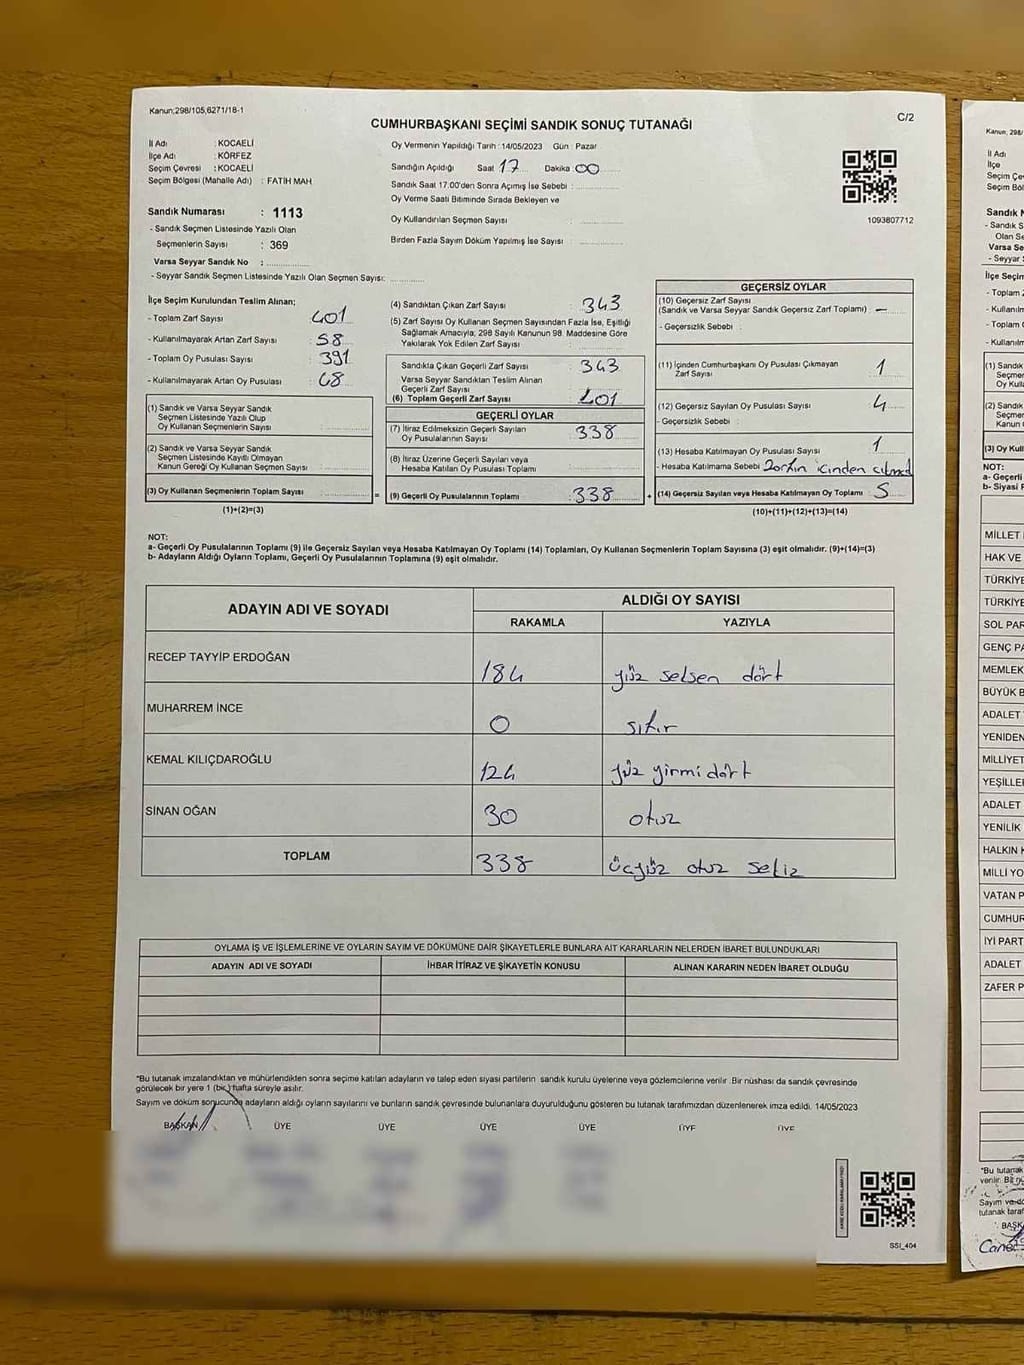 Kanun;298/105,6271/18-1
C/2
CUMHURBAŞKANI SEÇİMİ SANDIK SONUÇ TUTANAĞI
İl Adı : KOCAELİ
İlçe Adı : KÖRFEZ
Seçim Çevresi : KOCAELİ
Seçim Bölgesi (Mahalle Adı) : FATİH MAH
Sandık Numarası : 1113
- Sandık Seçmen Listesinde Yazılı Olan
Seçmenlerin Sayısı : 369
Varsa Seyyar Sandık No :
- Seyyar Sandık Seçmen Listesinde Yazılı Olan Seçmen Sayısı:
Oy Vermenin Yapıldığı Tarih : 14/05/2023 Gün : Pazar
Sandığın Açıldığı Saat 17 Dakika : 00
Sandık Saat 17:00'den Sonra Açımış İse Sebebi :
Oy Verme Saati Bitiminde Sırada Bekleyen ve
Oy Kullandırılan Seçmen Sayısı :
Birden Fazla Sayım Döküm Yapılmış İse Sayısı :
1093807712
İlçe Seçim Kurulundan Teslim Alınan;
- Toplam Zarf Sayısı : 401
- Kullanılmayarak Artan Zarf Sayısı : 58
- Toplam Oy Pusulası Sayısı : 391
- Kullanılmayarak Artan Oy Pusulası : 68
(1) Sandık ve Varsa Seyyar Sandık
Seçmen Listesinde Yazılı Olup
Oy Kullanan Seçmenlerin Sayısı :
(2) Sandık ve Varsa Seyyar Sandık
Seçmen Listesinde Kayıtlı Olmayan
Kanun Gereği Oy Kullanan Seçmen Sayısı :
(3) Oy Kullanan Seçmenlerin Toplam Sayısı :
(1)+(2)=(3)
(4) Sandıktan Çıkan Zarf Sayısı : 343
(5) Zarf Sayısı Oy Kullanan Seçmen Sayısından Fazla İse, Eşitliği
Sağlamak Amacıyla; 298 Sayılı Kanunun 98. Maddesine Göre
Yakılarak Yok Edilen Zarf Sayısı :
Sandıkta Çıkan Geçerli Zarf Sayısı : 343
Varsa Seyyar Sandıktan Teslim Alınan
Geçerli Zarf Sayısı :
(6) Toplam Geçerli Zarf Sayısı : 401
GEÇERLİ OYLAR
(7) İtiraz Edilmeksizin Geçerli Sayılan
Oy Pusulalarının Sayısı : 338
(8) İtiraz Üzerine Geçerli Sayılan veya
Hesaba Katılan Oy Pusulası Toplamı :
(9) Geçerli Oy Pusulalarının Toplamı : 338
GEÇERSİZ OYLAR
(10) Geçersiz Zarf Sayısı
(Sandık ve Varsa Seyyar Sandık Geçersiz Zarf Toplamı) : —
- Geçersizlik Sebebi :
(11) İçinden Cumhurbaşkanı Oy Pusulası Çıkmayan
Zarf Sayısı : 1
(12) Geçersiz Sayılan Oy Pusulası Sayısı : 4
- Geçersizlik Sebebi :
(13) Hesaba Katılmayan Oy Pusulası Sayısı : 1
- Hesaba Katılmama Sebebi Zarfın içinden çıkmadı
(14) Geçersiz Sayılan veya Hesaba Katılmayan Oy Toplamı : 5
(10)+(11)+(12)+(13)=(14)
NOT:
a- Geçerli Oy Pusulalarının Toplamı (9) ile Geçersiz Sayılan veya Hesaba Katılmayan Oy Toplamı (14) Toplamları, Oy Kullanan Seçmenlerin Toplam Sayısına (3) eşit olmalıdır. (9)+(14)=(3)
b- Adayların Aldığı Oyların Toplamı, Geçerli Oy Pusulalarının Toplamına (9) eşit olmalıdır.
ADAYIN ADI VE SOYADI ALDIĞI OY SAYISI
RAKAMLA YAZIYLA
RECEP TAYYİP ERDOĞAN 184 yüz seksen dört
MUHARREM İNCE 0 sıfır
KEMAL KILIÇDAROĞLU 124 yüz yirmi dört
SİNAN OĞAN 30 otuz
TOPLAM 338 üçyüz otuz sekiz
OYLAMA İŞ VE İŞLEMLERİNE VE OYLARIN SAYIM VE DÖKÜMÜNE DAİR ŞİKAYETLERLE BUNLARA AİT KARARLARIN NELERDEN İBARET BULUNDUKLARI
ADAYIN ADI VE SOYADI İHBAR İTİRAZ VE ŞİKAYETİN KONUSU ALINAN KARARIN NEDEN İBARET OLDUĞU
*Bu tutanak imzalandıktan ve mühürlendikten sonra seçime katılan adayların ve talep eden siyasi partilerin sandık kurulu üyelerine veya gözlemcilerine verilir .Bir nüshası da sandık çevresinde
görülecek bir yere 1 (bir) hafta süreyle asılır.
Sayım ve döküm sonucunda adayların aldığı oyların sayılarını ve bunların sandık çevresinde bulunanlara duyurulduğunu gösteren bu tutanak tarafımızdan düzenlenerek imza edildi. 14/05/2023
BAŞKAN ÜYE ÜYE ÜYE ÜYE ÜYE ÜYE
SSI_404
Kanun, 298/
İl Adı
İlçe
Seçim Çev
Seçim Böl
Sandık N
- Sandık S
Olan Se
Varsa Se
- Seyyar
İlçe Seçim
- Toplam Z
- Kullanılm
- Toplam O
- Kullanılm
(1) Sandık
Seçmen
Oy Kull
(2) Sandık
Seçmen
Kanun G
(3) Oy Kull
NOT:
a- Geçerli
b- Siyasi P
MİLLET
HAK VE
TÜRKİYE
TÜRKİYE
SOL PAR
GENÇ PA
MEMLEK
BÜYÜK B
ADALET
YENİDEN
MİLLİYET
YEŞİLLER
ADALET
YENİLİK
HALKIN K
MİLLİ YO
VATAN P
CUMHUR
İYİ PARTİ
ADALET
ZAFER P
*Bu tutanak
verilir. Bir nü
Sayım ve dö
tutanak taraf
BAŞK